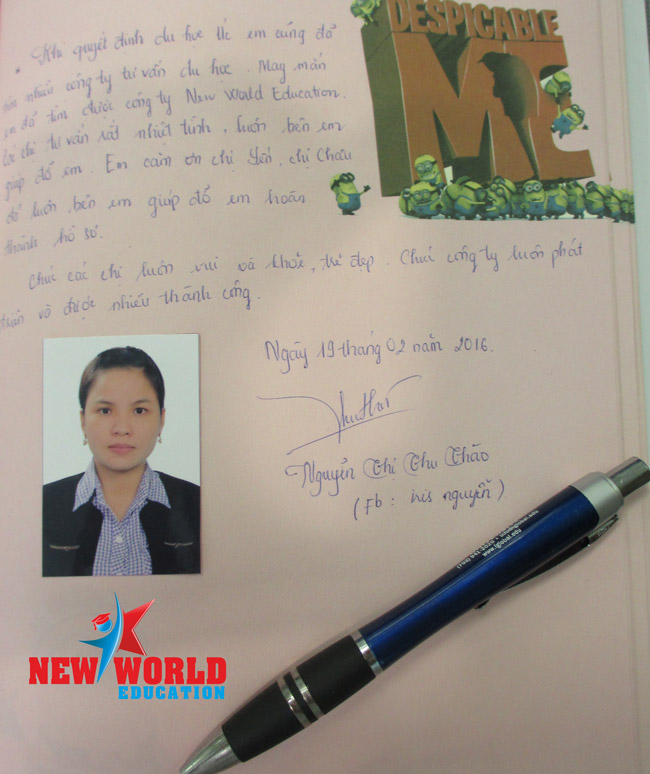 DESPICABLE
ME
Khi quyết định du học Úc em cũng đổ
nhiều công ty tư vấn du học. May mắn
em đổ tìm được công ty New World Education.
chị tư vấn rất nhiệt tình, luôn bên em
giúp đổ em. Em cảm ơn chị Yến, chị Châu
đổ luôn bên em giúp đổ em hoàn
thành hồ sơ.
Chúc các chị luôn vui và khỏe, trẻ đẹp. Chúc công ty luôn phát
triển và được nhiều thành công.
Ngày 19 tháng 02 năm 2016.
Nguyễn Thị Thu Thảo
(Fb: iris nguyễn)
NEW WORLD
EDUCATION